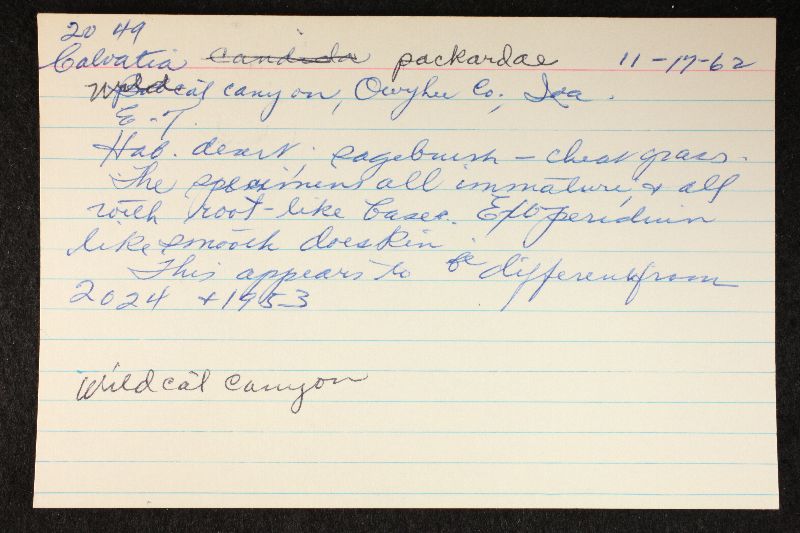 20 49
Calvatia candida packardae 11-17-62
Wild cat canyon, Owyhee Co., Ida.
E.T.
Hab. desert; sagebrush - cheat grass.
The specimens all immature, & all
with root-like bases. Exoperidium
like smooth doeskin.
This appears to be different from
2024 + 1953
Wildcat canyon